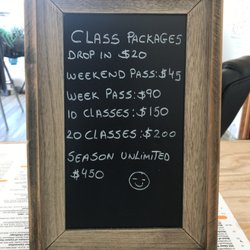 CLASS PACKAGES
DROP IN $20
WEEKEND PASS:$45
WEEK PASS:$90
10 CLASSES:$150
20 CLASSES:$200
SEASON UNLIMITED
$450